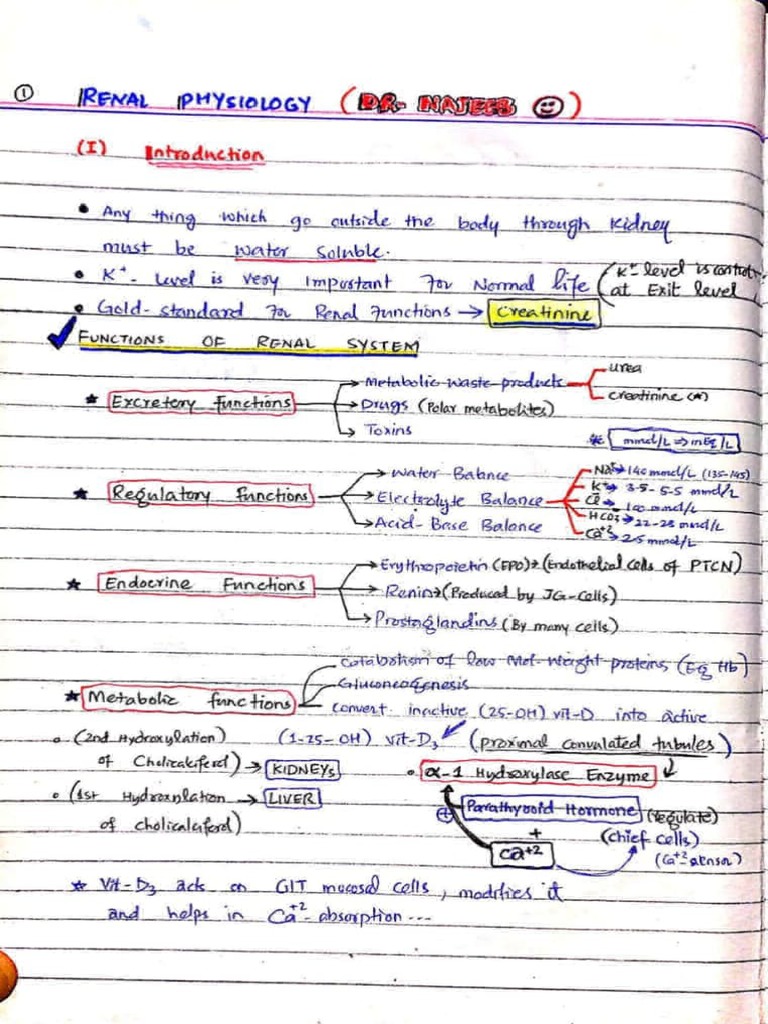 ① RENAL PHYSIOLOGY (DR. NAJEEB ☺)
(I) Introduction
• Any thing which go outside the body through Kidney
must be water soluble.
• K⁺- level is very Important For Normal life (K⁺-level is control
at Exit level
• Gold-standard For Renal Functions → Creatinine
✓ FUNCTIONS OF RENAL SYSTEM
★ Excretory Functions
→ Metabolic waste products
urea
creatinine (★)
→ Drugs (Polar metabolites)
→ Toxins
* mmol/L ⇒ mEq/L
★ Regulatory Functions
→ Water Balance
→ Electrolyte Balance
Na⁺→ 140 mmol/L (135-145)
K⁺→ 3.5-5.5 mmol/L
Cl⁻→ 100 mmol/L
HCO₃→ 22-28 mmol/L
Ca⁺²→ 2.5 mmol/L
→ Acid-Base Balance
★ Endocrine Functions
→ Erythropoietin (EPO)→ (Endothelial cells of PTCN)
→ Renin→ (Produced by JG-Cells)
→ Prostaglandins (By many cells)
★ Metabolic functions
catabolism of low Mol-weight proteins (Eg Hb)
Gluconeogenesis
convert inactive (25-OH) vit-D into active
(1-25-OH) vit-D₃ (proximal convulated tubules)
◦ (2nd Hydroxylation)
of Cholicalciferol) → KIDNEYs
◦ (1st Hydroxylation → LIVER
of cholicalciferol)
• α-1 Hydroxylase Enzyme
⊕ Parathyroid Hormone (regulate)
+ (chief cells)
Ca⁺² (Ca⁺² sensor)
★ Vit-D₃ acts on GIT mucosal cells, modifies it
and helps in Ca⁺²-absorption ...